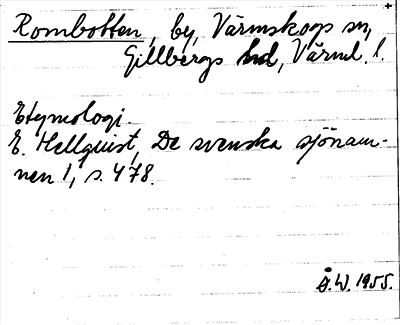 Rombotten, by, Värmskogs sn,
Gillbergs hd, Värml. l.
Etymologi.
E. Hellquist, De svenska sjönam-
nen 1, s. 478.
Å.W. 1955.